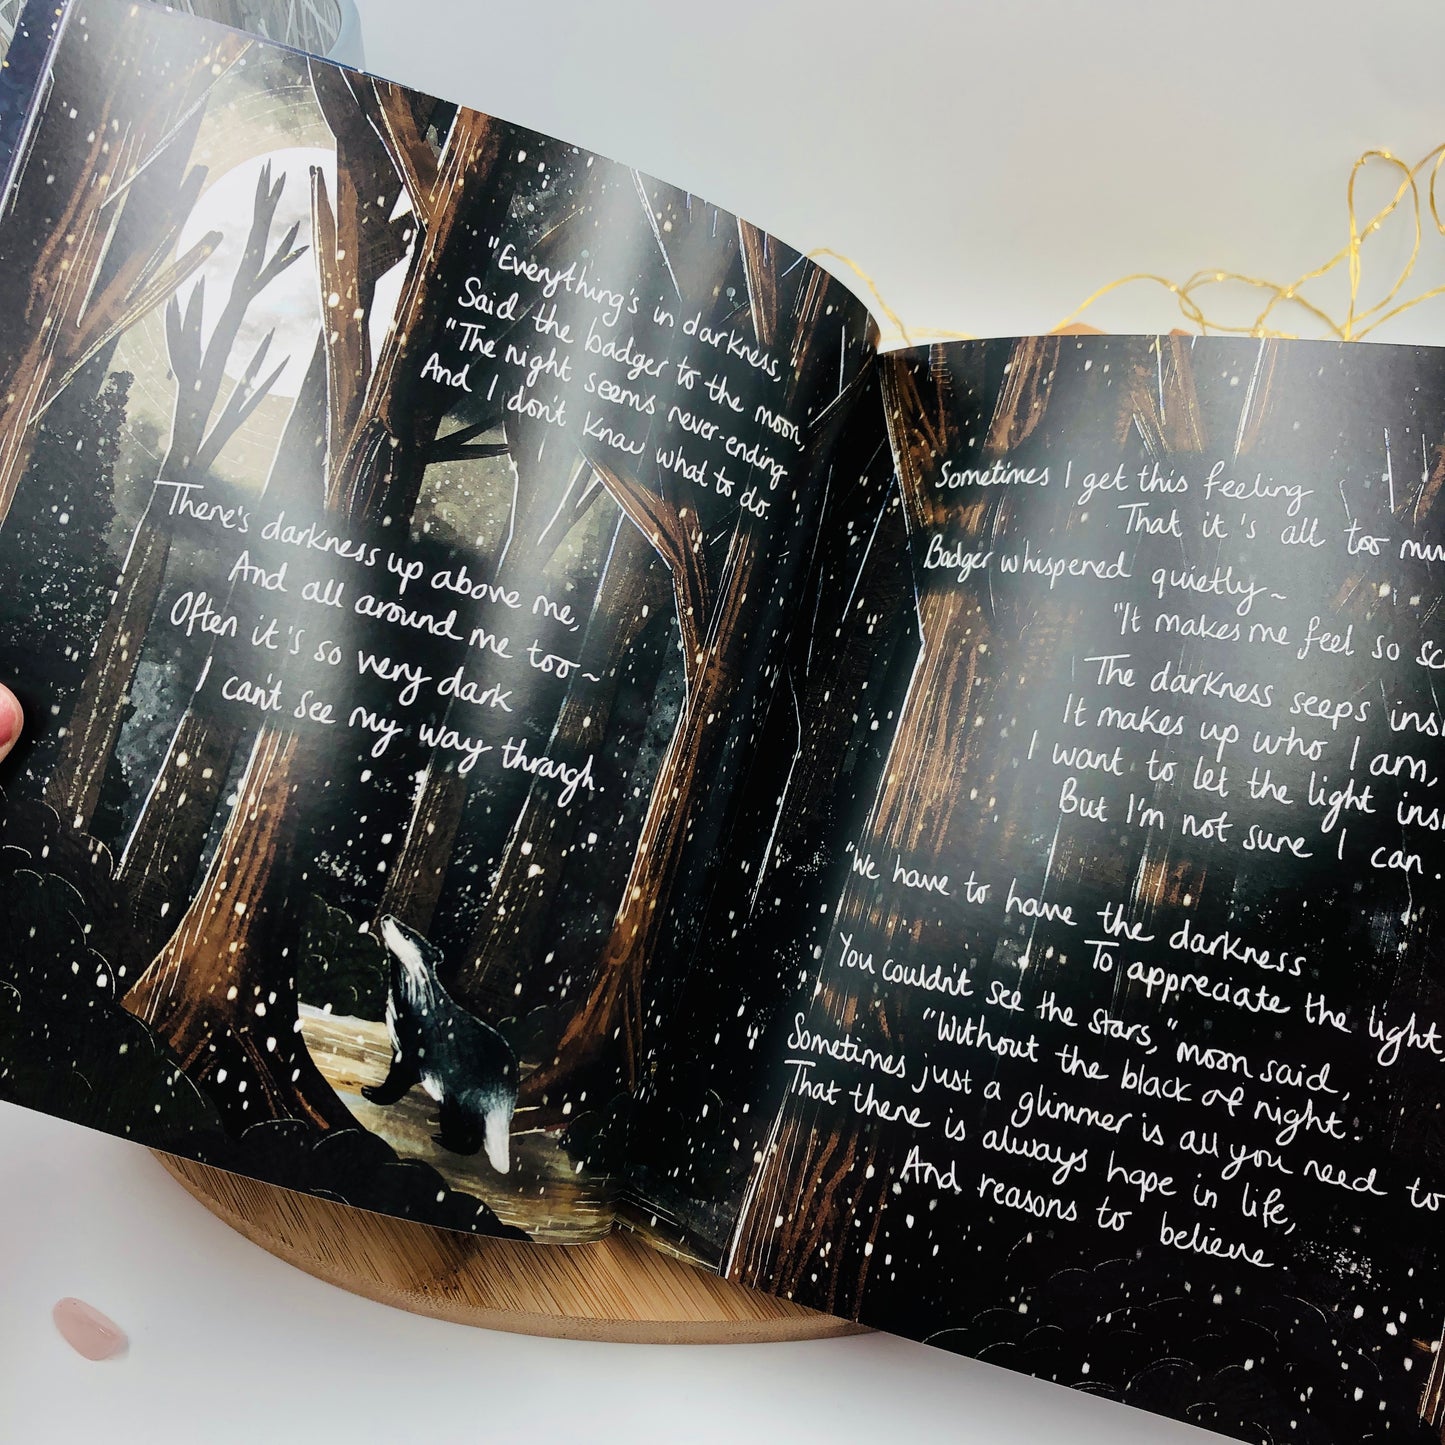 "Everything's in darkness,"
Said the badger to the moon,
"The night seems never-ending
And I don't know what to do.
There's darkness up above me,
And all around me too~
Often it's so very dark
I can't see my way through.
Sometimes I get this feeling
That it's all too
Badger whispered quietly~
"It makes me feel so
The darkness seeps
It makes up who I am,
I want to let the light
But I'm not sure I can.
"We have to have the darkness
To appreciate the light,
You couldn't see the stars," moon said,
"Without the black of night.
Sometimes just a glimmer is all you need to
That there is always hope in life,
And reasons to believe.